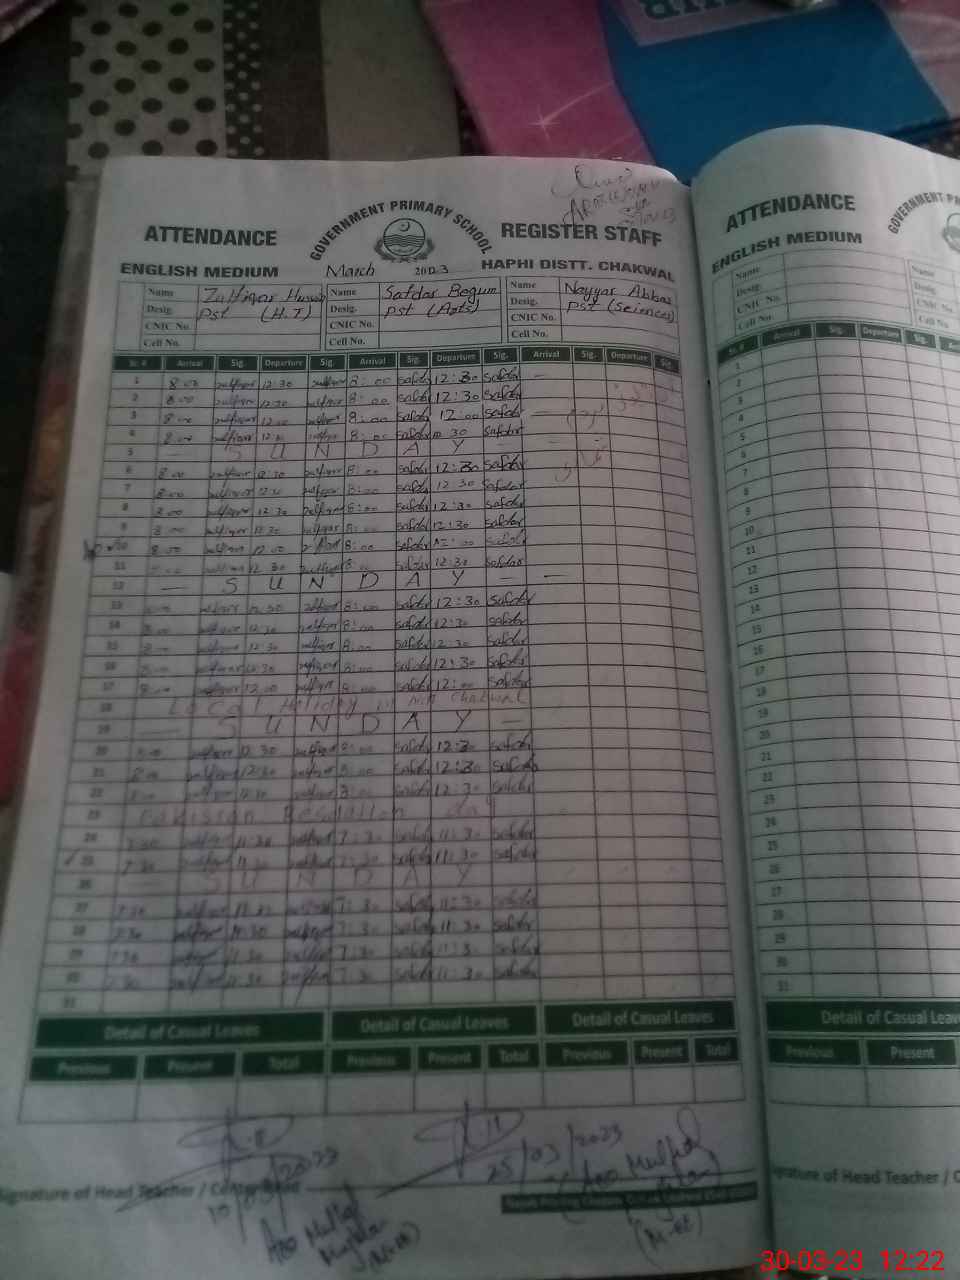 GOVERNMENT PRIMARY SCHOOL
ATTENDANCE REGISTER STAFF
ENGLISH MEDIUM March 2023 HAPHI DISTT. CHAKWAL
Name Zulfiqar Hussain Name Safdar Begum Name Nayyar Abbas
Desig. PST (H.T) Desig. PST (Arts) Desig. PST (Science)
CNIC No. CNIC No. CNIC No.
Cell No. Cell No. Cell No.
Sr. # Arrival Sig. Departure Sig. Arrival Sig. Departure Sig. Arrival Sig. Departure Sig.
1 8:00 zulfiqar 12:30 zulfiqar 8:00 safdar 12:30 safdar
2 8:00 zulfiqar 12:30 zulfiqar 8:00 safdar 12:30 safdar
3 8:00 zulfiqar 12:00 zulfiqar 8:00 safdar 12:00 safdar
4 8:00 zulfiqar zulfiqar 8:00 safdar 30 safdar
5 — S U N D A Y
6 8:00 zulfiqar 12:30 zulfiqar 8:00 safdar 12:30 safdar
7 8:00 zulfiqar 12:30 zulfiqar 8:00 safdar 12:30 safdar
8 8:00 zulfiqar 12:30 zulfiqar 8:00 safdar 12:30 safdar
9 8:00 zulfiqar 12:30 zulfiqar 8:00 safdar 12:30 safdar
10 8:00 zulfiqar 12:00 zulfiqar 8:00 safdar 12:00 safdar
11 8:00 zulfiqar 12:30 zulfiqar 8:00 safdar 12:30 safdar
12 — S U N D A Y — —
13 8:00 zulfiqar 12:30 zulfiqar 8:00 safdar 12:30 safdar
14 8:00 zulfiqar 12:30 zulfiqar 8:00 safdar 12:30 safdar
15 8:00 zulfiqar 12:30 zulfiqar 8:00 safdar 12:30 safdar
16 8:00 zulfiqar 12:30 zulfiqar 8:00 safdar 12:30 safdar
17 8:00 zulfiqar 12:00 zulfiqar 8:00 safdar 12:00 safdar
18 Local Holiday in Chakwal
19 — S U N D A Y —
20 8:00 zulfiqar 12:30 zulfiqar 8:00 safdar 12:30 safdar
21 8:00 zulfiqar 12:30 zulfiqar 8:00 safdar 12:30 safdar
22 8:00 zulfiqar 12:30 zulfiqar 8:00 safdar 12:30 safdar
23 Pakistan Resolution day
24 7:30 zulfiqar 11:30 zulfiqar 7:30 safdar 11:30 safdar
25 7:30 zulfiqar 11:30 zulfiqar 7:30 safdar 11:30 safdar
26 — S U N D A Y
27 7:30 zulfiqar 11:30 zulfiqar 7:30 safdar 11:30 safdar
28 7:30 zulfiqar 11:30 zulfiqar 7:30 safdar 11:30 safdar
29 7:30 zulfiqar 11:30 zulfiqar 7:30 safdar 11:30 safdar
30 7:30 zulfiqar 11:30 zulfiqar 7:30 safdar 11:30 safdar
31
Detail of Casual Leaves Detail of Casual Leaves Detail of Casual Leaves
Previous Present Total Previous Present Total Previous Present Total
25/03/2023
Signature of Head Teacher /
10/03/2023
AEO
ATTENDANCE
GOVERNMENT
ENGLISH MEDIUM
Name Name
Desig. Desig.
CNIC No. CNIC No.
Cell No. Cell No.
Sr. # Arrival Sig. Departure Sig.
1
2
3
4
5
6
7
8
9
10
11
12
13
14
15
16
17
18
19
20
21
22
23
24
25
26
27
28
29
30
31
Detail of Casual
Previous Present
of Head Teacher
30-03-23 12:22